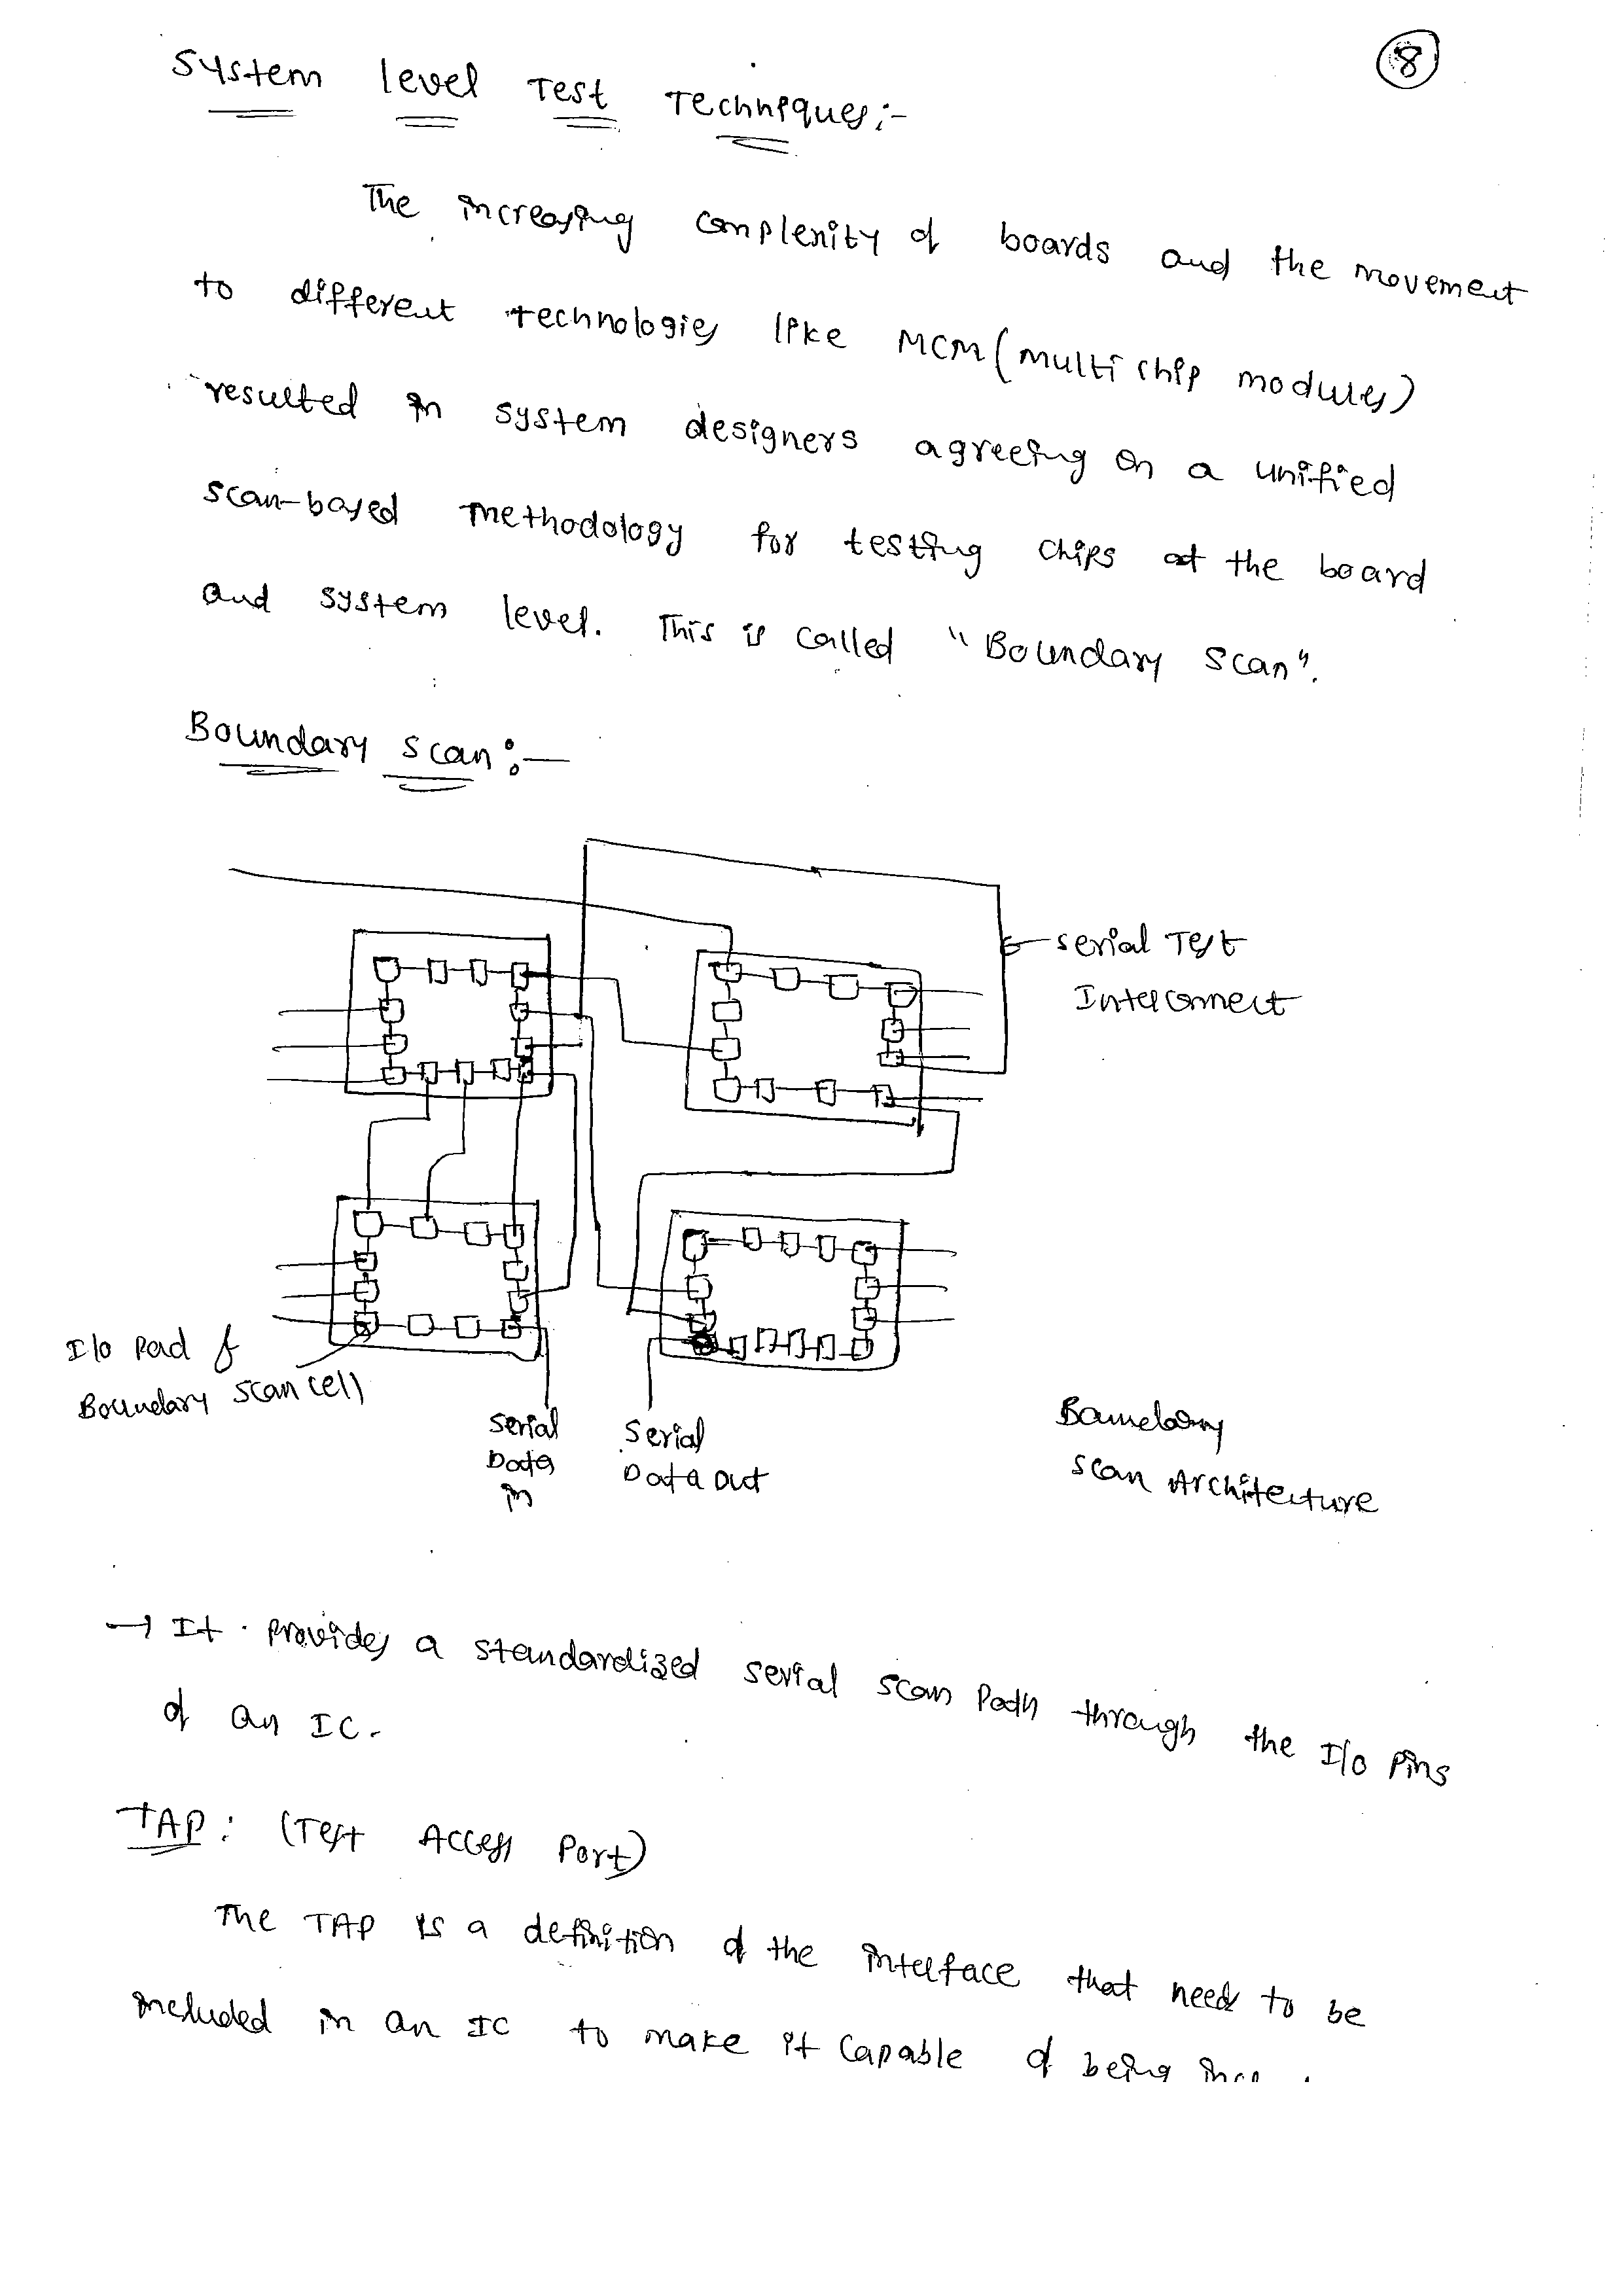 8
System level Test Techniques:-
The increasing complexity of boards and the movement
to different technologies like MCM (multi chip modules)
resulted in system designers agreeing on a unified
scan-based methodology for testing chips at the board
and system level. This is called "Boundary Scan".
Boundary scan:-
serial Test
Interconnect
I/o Pad &
Boundary scan cell
serial
Data
in
Serial
Data out
Boundary
scan Architecture
→ It provides a standardized serial scan Path through the I/o Pins
of an IC.
TAP: (Test Access Port)
The TAP is a definition of the interface that need to be
included in an IC to make it capable of being